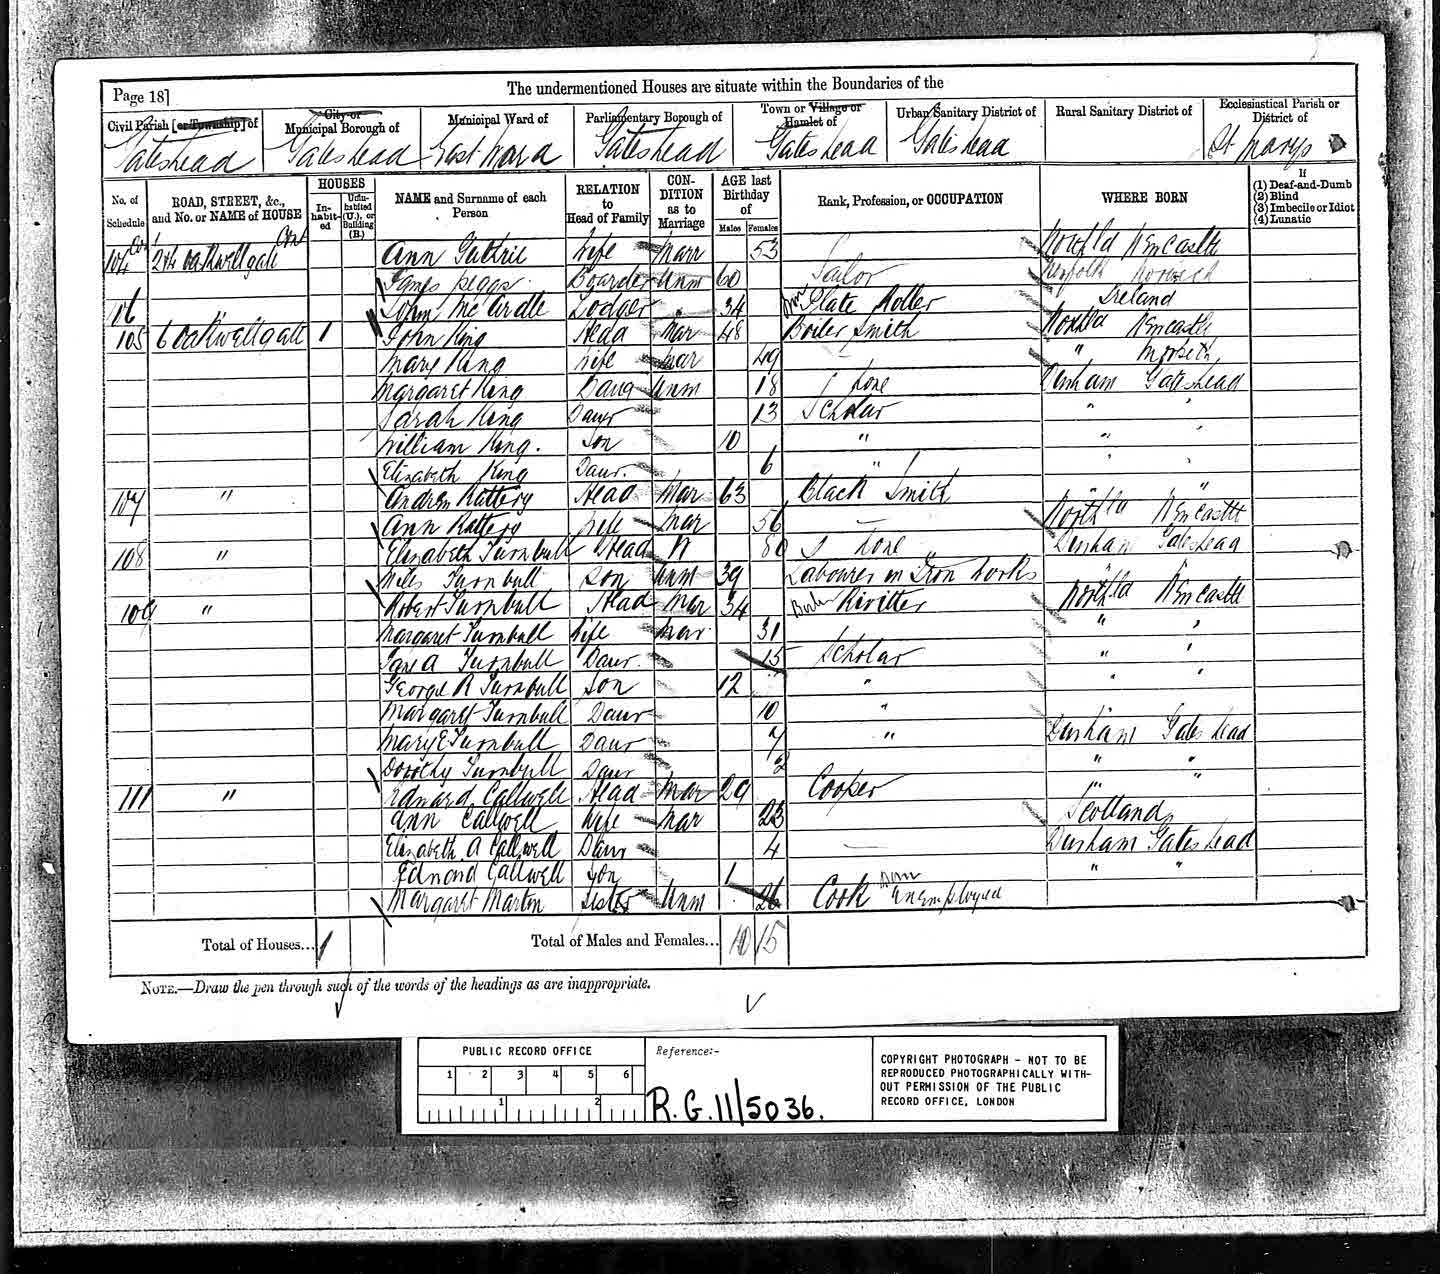 The undermentioned Houses are situate within the Boundaries of the
Page 18]
Civil Parish [or Township] of
City or Municipal Borough of
Municipal Ward of
Parliamentary Borough of
Town or Village or Hamlet of
Urban Sanitary District of
Rural Sanitary District of
Ecclesiastical Parish or District of
Gateshead Gateshead East Ward Gateshead Gateshead Gateshead St Marys
No. of Schedule
ROAD, STREET, &c., and No. or NAME of HOUSE
HOUSES
In-habit-ed
Uninhabited (U.), or Building (B.)
NAME and Surname of each Person
RELATION to Head of Family
CON-DITION as to Marriage
AGE last Birthday of
Males
Females
Rank, Profession, or OCCUPATION
WHERE BORN
If
(1) Deaf-and-Dumb
(2) Blind
(3) Imbecile or Idiot
(4) Lunatic
104 Oakwellgate Ann Guthrie Wife Marr 53 North'd Newcastle
James Boarder Unm 60 Norfolk
106 John McArdle Lodger " 34 Plate Roller Ireland
105 6 Oakwellgate 1 John King Head Mar 48 Boiler Smith North'd Newcastle
Mary King Wife Mar 49 "
Margaret King Daug Unm 18 Durham Gateshead
Sarah King Daur 13 Scholar " "
William King. Son 10 " " "
Elizabeth King Daur. 6 " " "
107 " Andrew Rattery Head Mar 63 Black Smith " "
Ann Rattery Wife Mar 56 — North'd Newcastle
108 " Elizabeth Turnbull Head W 80 Durham Gateshead
Turnbull Son Unm 39 Labourer in Iron Works " "
109 " Robert Turnbull Head Mar 34 Boiler Rivitter North'd Newcastle
Margaret Turnbull Wife Mar 31 " "
Jane A Turnbull Daur. 15 Scholar " "
George R Turnbull Son 12 " " "
Margaret Turnbull Daur 10 "
Mary E Turnbull Daur 7 " Durham Gateshead
Dorothy Turnbull Daur 2 " "
111 " Edward Callwell Head Mar 29 Cooper " "
Ann Callwell Wife Mar 23 Scotland
Elizabeth A Callwell Daur 4 — Durham Gateshead
Edmond Callwell Son 1 " "
Margaret Marton Sister Unm 26 Cook Dom unemployed
Total of Houses... 1
Total of Males and Females... 10 15
NOTE.—Draw the pen through such of the words of the headings as are inappropriate.
PUBLIC RECORD OFFICE
1 2 3 4 5 6
1 2
Reference:-
R.G. 11/5036.
COPYRIGHT PHOTOGRAPH - NOT TO BE
REPRODUCED PHOTOGRAPHICALLY WITH-
OUT PERMISSION OF THE PUBLIC
RECORD OFFICE, LONDON